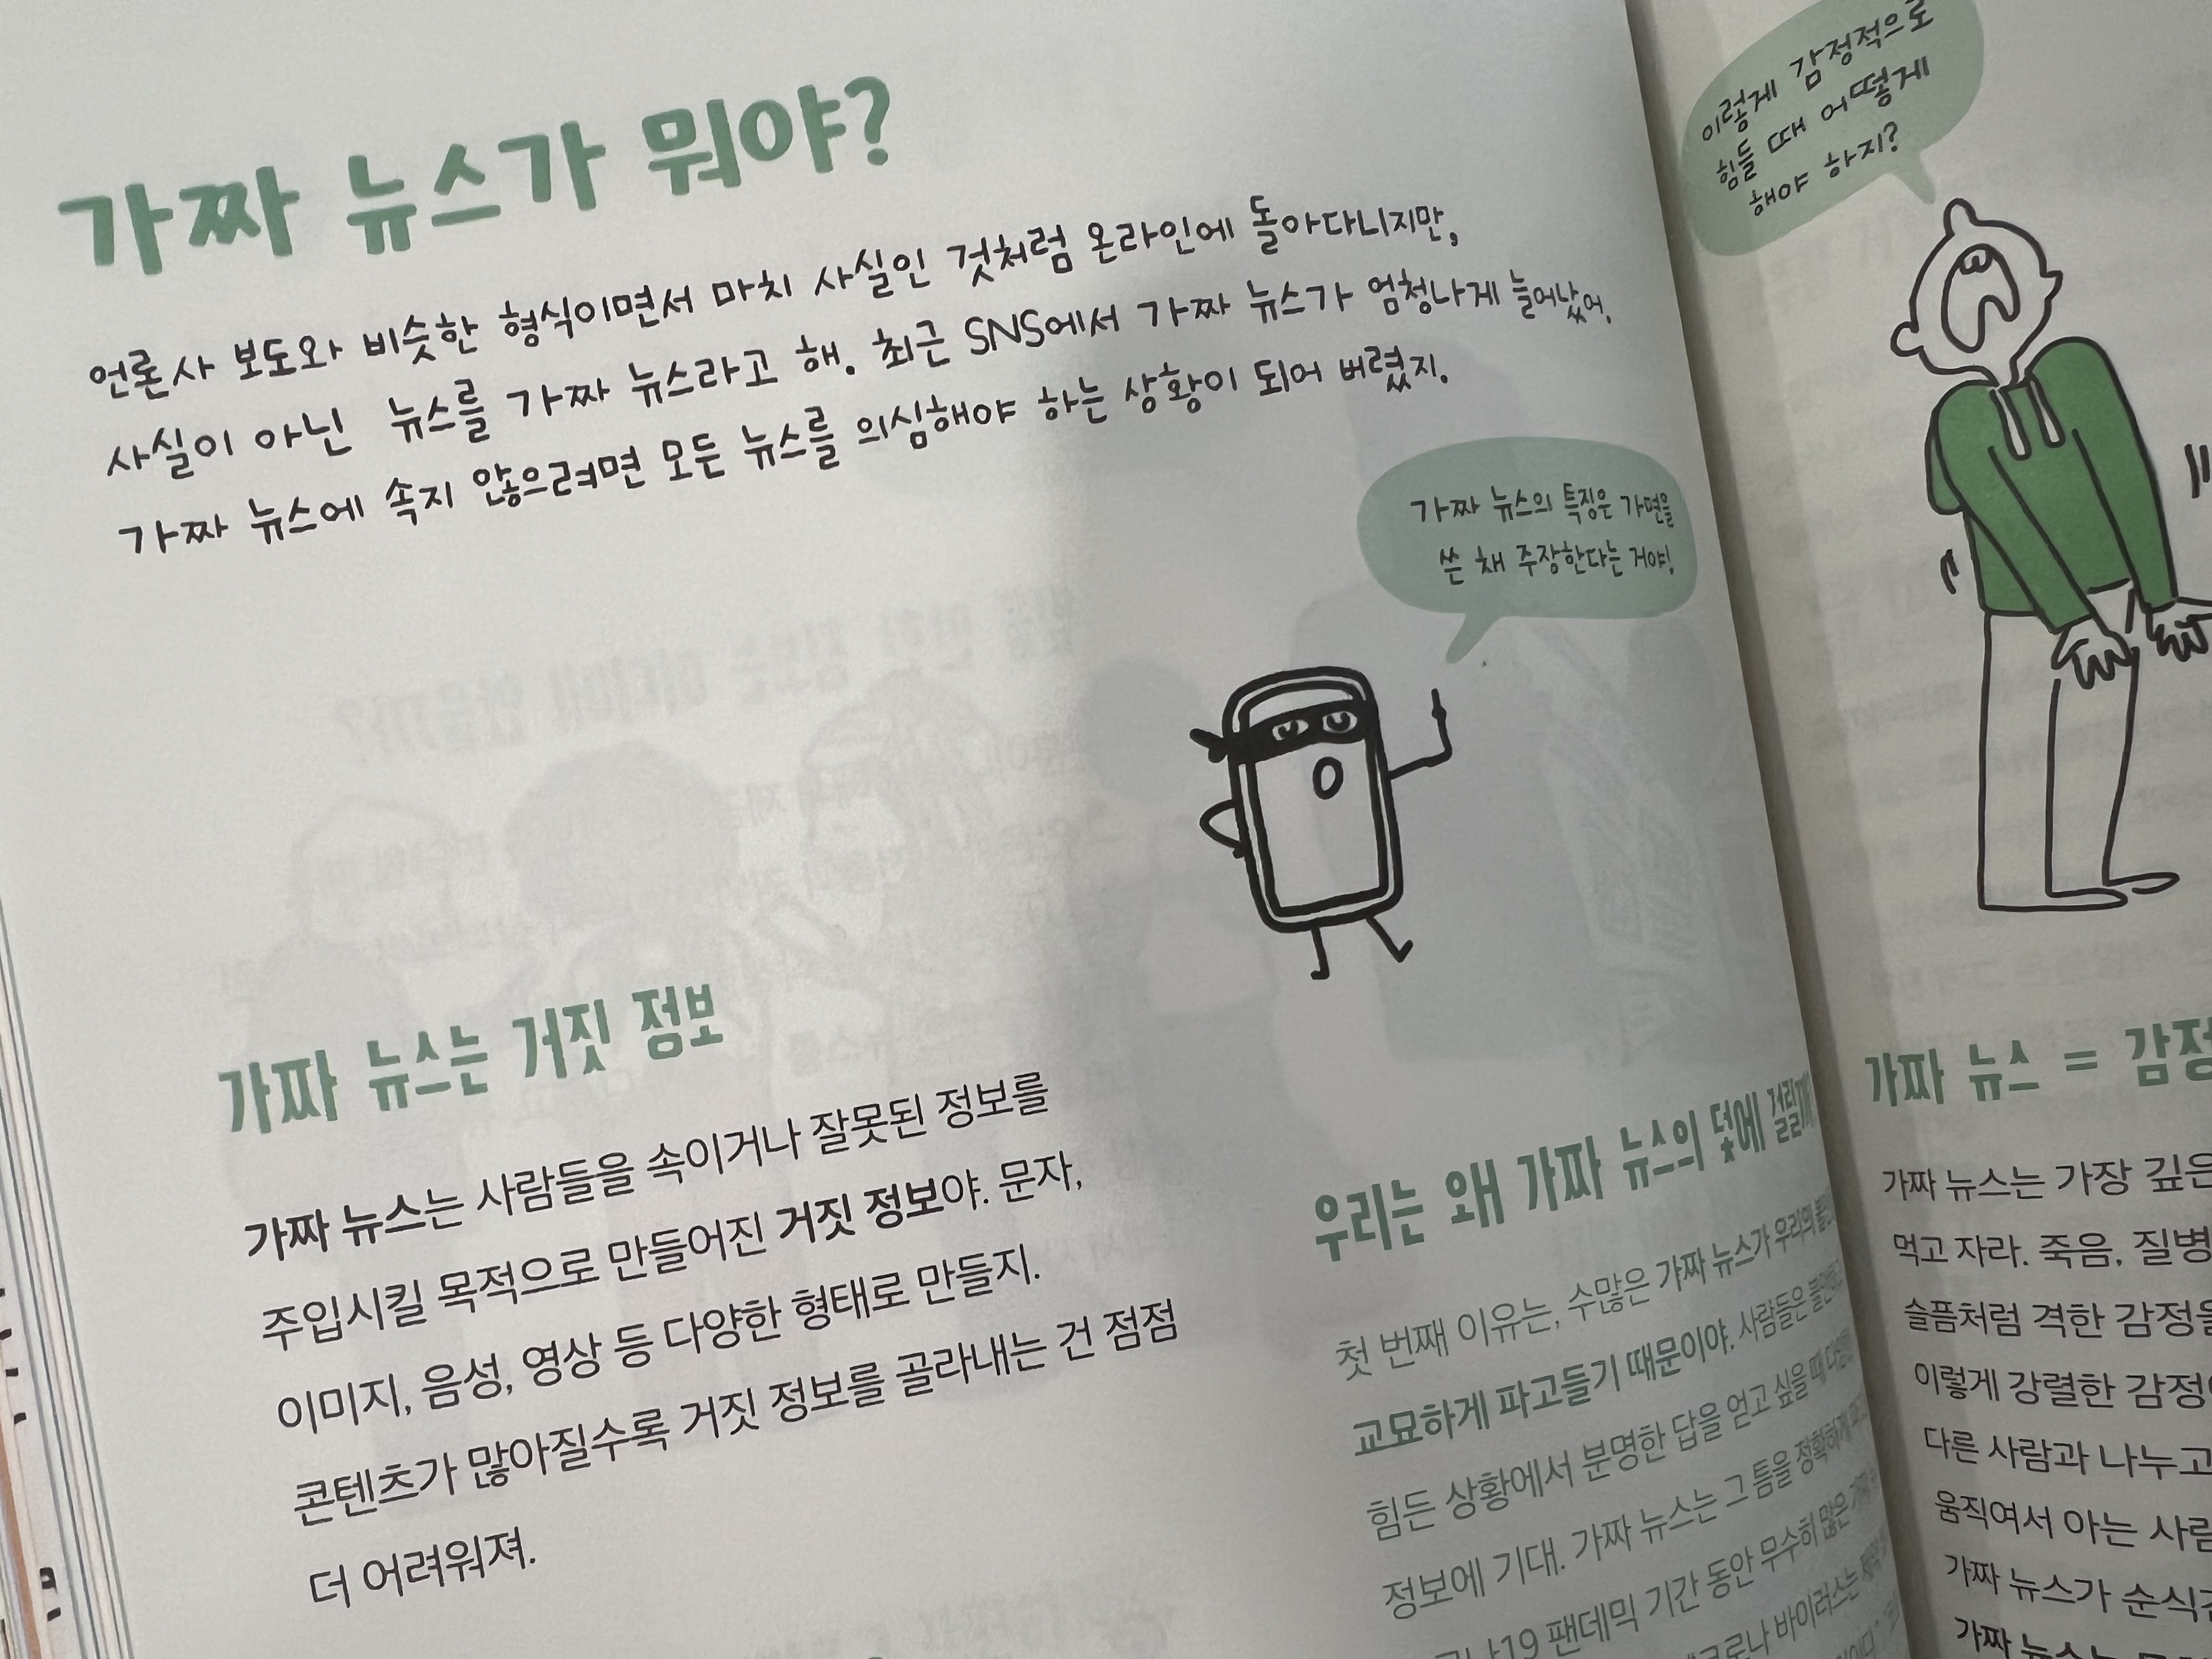 가짜 뉴스가 뭐야?
언론사 보도와 비슷한 형식이면서 마치 사실인 것처럼 온라인에 돌아다니지만,
사실이 아닌 뉴스를 가짜 뉴스라고 해. 최근 SNS에서 가짜 뉴스가 엄청나게 늘어났어.
가짜 뉴스에 속지 않으려면 모든 뉴스를 의심해야 하는 상황이 되어 버렸지.
가짜 뉴스의 특징은 가면을
쓴 채 주장한다는 거야!
가짜 뉴스는 거짓 정보
가짜 뉴스는 사람들을 속이거나 잘못된 정보를
주입시킬 목적으로 만들어진 거짓 정보야. 문자,
이미지, 음성, 영상 등 다양한 형태로 만들지.
콘텐츠가 많아질수록 거짓 정보를 골라내는 건 점점
더 어려워져.
우리는 왜 가짜 뉴스의 덫에
첫 번째 이유는, 수많은 가짜 뉴스가 우리의
교묘하게 파고들기 때문이야. 사람들은
힘든 상황에서 분명한 답을 얻고 싶을 때
정보에 기대. 가짜 뉴스는 그 틈을 정확하게
19 팬데믹 기간 동안 무수히 많은
바이러스는
이렇게 감정적으로
힘들 때 어떻게
해야 하지?
가짜 뉴스 =
가짜 뉴스는 가장 깊은
먹고 자라. 죽음, 질병
슬픔처럼 격한 감정을
이렇게 강렬한
다른 사람과 나누고
움직여서 아는
가짜 뉴스가
가짜